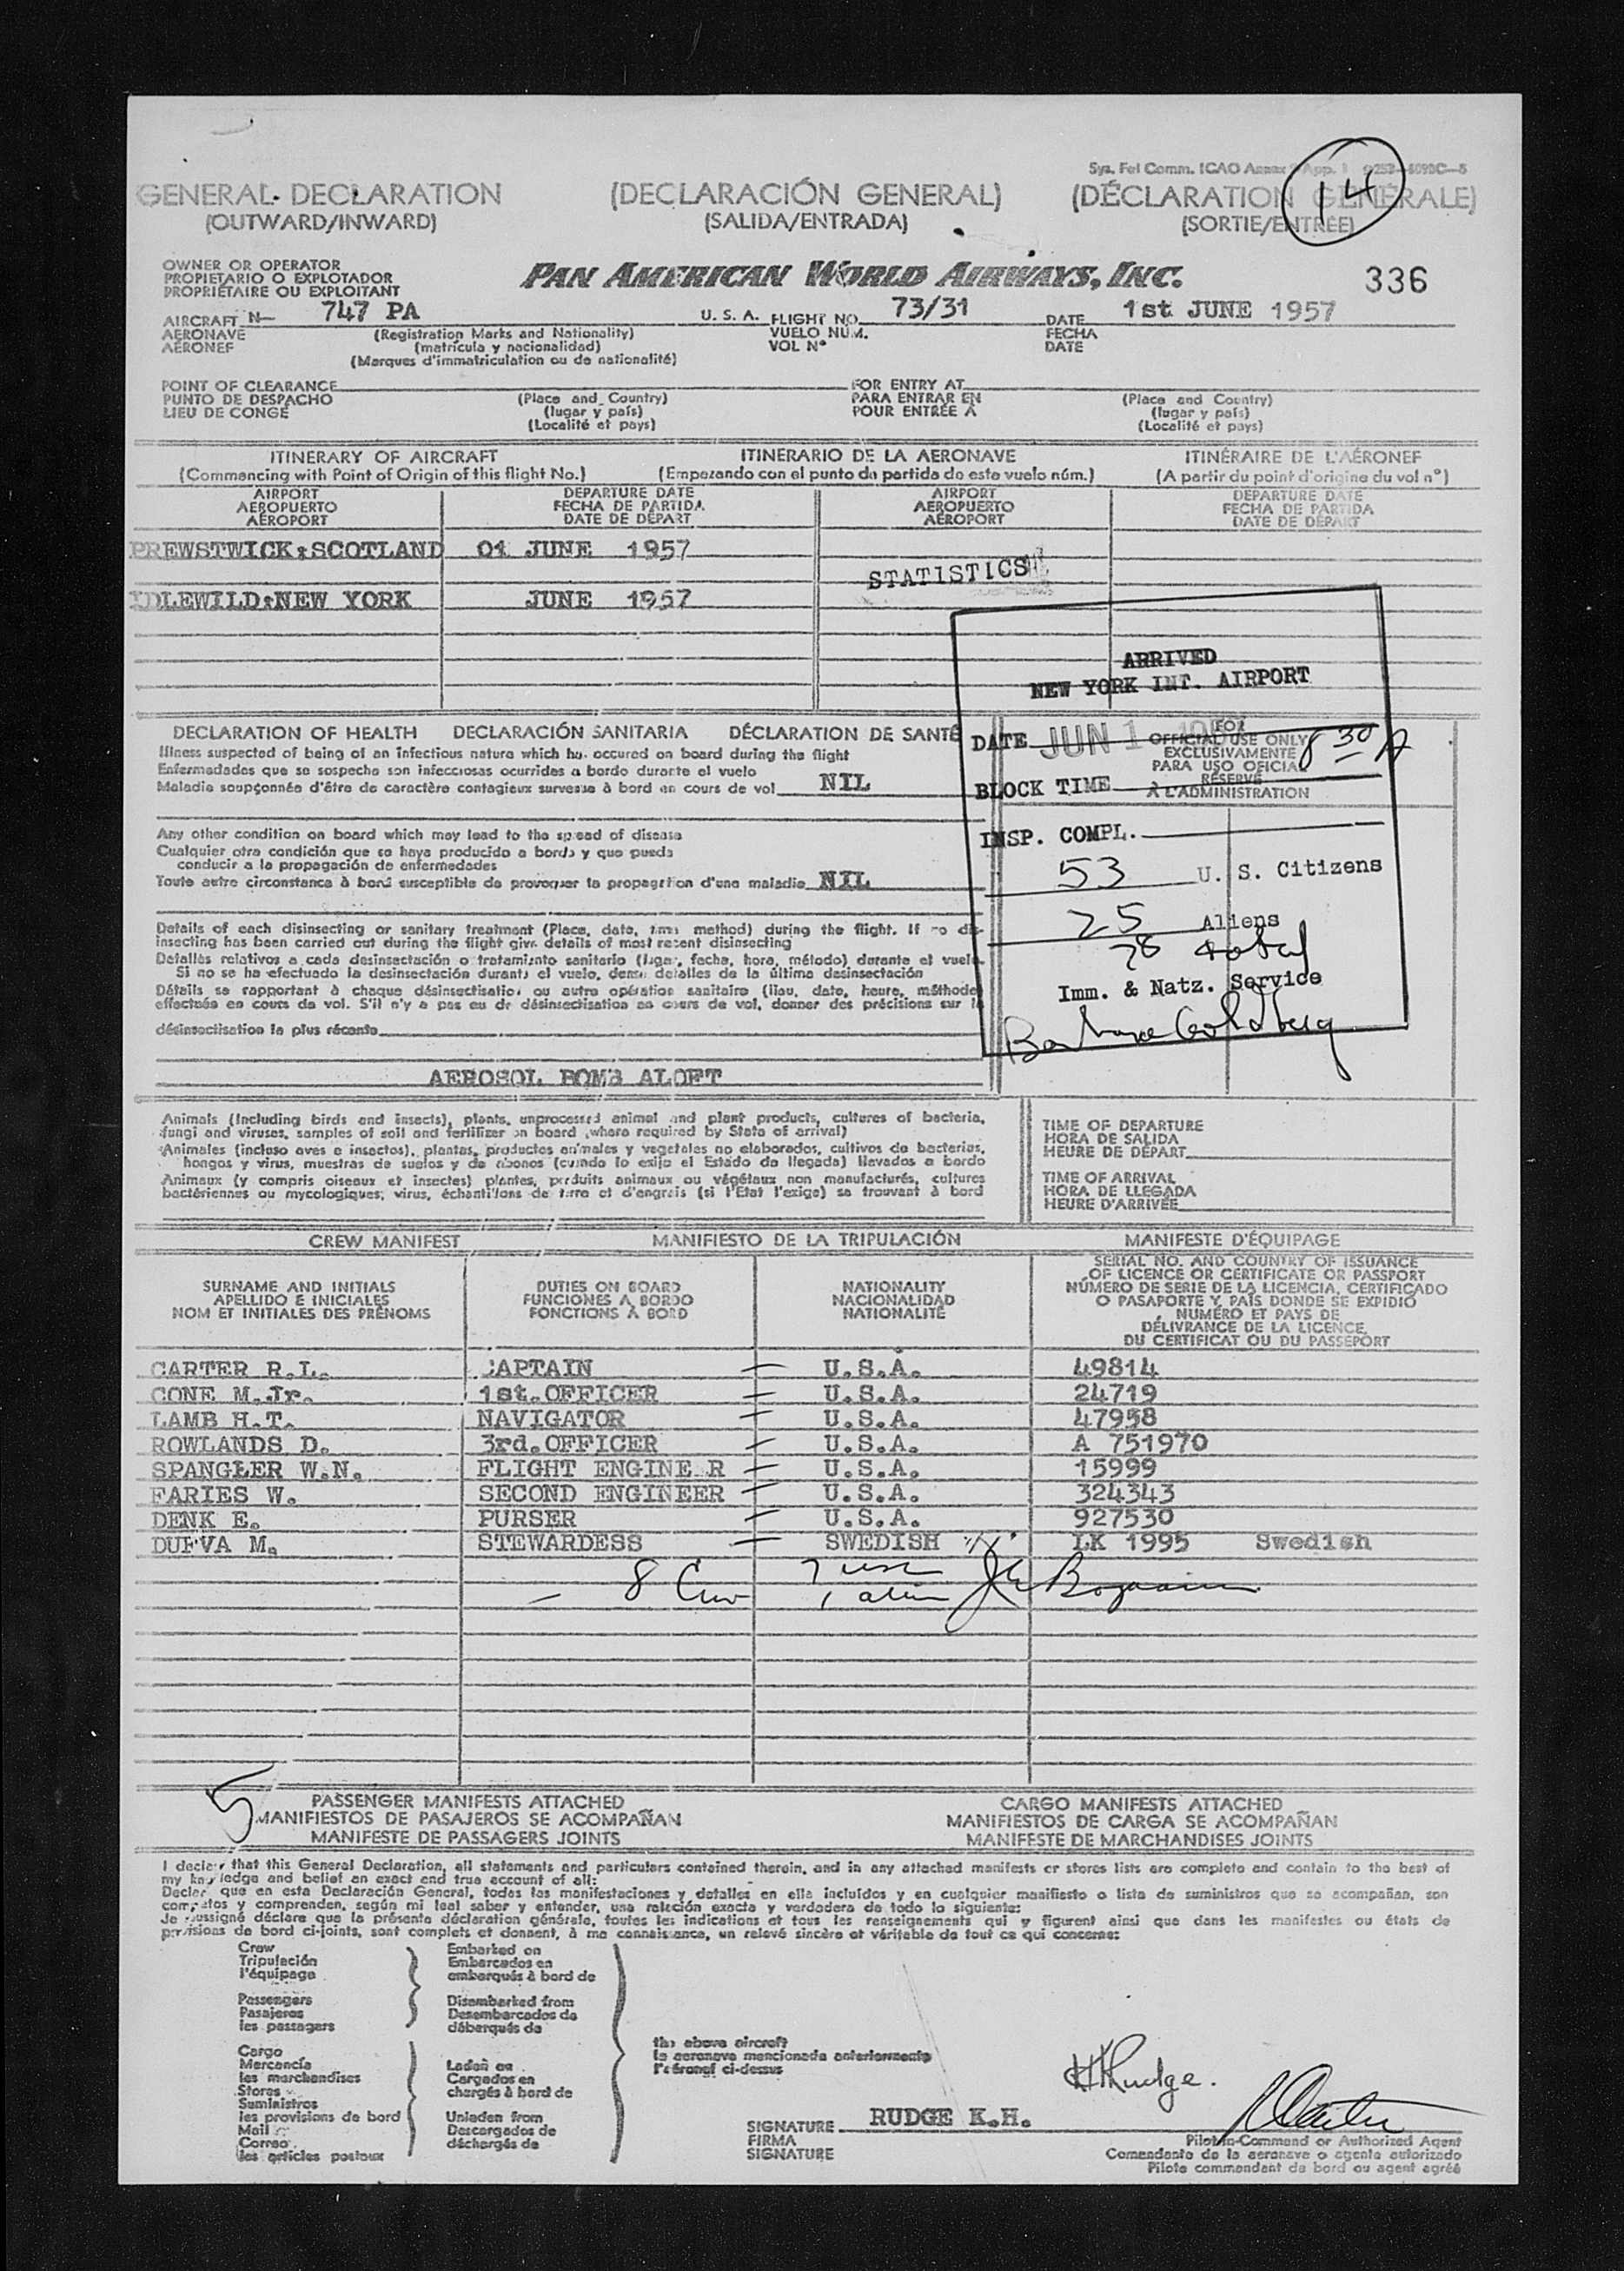 Sys. Fel Comm. ICAO Annex App. 1
14
GENERAL DECLARATION (DECLARACIÓN GENERAL) (DÉCLARATION GÉNÉRALE)
(OUTWARD/INWARD) (SALIDA/ENTRADA) (SORTIE/ENTRÉE)
OWNER OR OPERATOR
PROPIETARIO O EXPLOTADOR
PROPRIÉTAIRE OU EXPLOITANT
PAN AMERICAN WORLD AIRWAYS, INC. 336
AIRCRAFT N- 747 PA U. S. A. FLIGHT NO. 73/31 DATE 1st JUNE 1957
AERONAVE (Registration Marks and Nationality) VUELO NÚM. FECHA
AÉRONEF (matrícula y nacionalidad) VOL N° DATE
(Marques d'immatriculation ou de nationalité)
POINT OF CLEARANCE FOR ENTRY AT
PUNTO DE DESPACHO (Place and Country) PARA ENTRAR EN (Place and Country)
LIEU DE CONGÉ (lugar y país) POUR ENTRÉE À (lugar y país)
(Localité et pays) (Localité et pays)
ITINERARY OF AIRCRAFT ITINERARIO DE LA AERONAVE ITINÉRAIRE DE L'AÉRONEF
(Commencing with Point of Origin of this flight No.) (Empezando con el punto de partida de este vuelo núm.) (A partir du point d'origine du vol n°)
AIRPORT DEPARTURE DATE AIRPORT DEPARTURE DATE
AEROPUERTO FECHA DE PARTIDA AEROPUERTO FECHA DE PARTIDA
AÉROPORT DATE DE DÉPART AÉROPORT DATE DE DÉPART
PREWSTWICK:SCOTLAND 01 JUNE 1957
STATISTICS
IDLEWILD:NEW YORK JUNE 1957
ARRIVED
NEW YORK INT. AIRPORT
DATE JUN 1
BLOCK TIME 8 30 A
INSP. COMPL.
53 U. S. Citizens
25 Aliens
78 total
Imm. & Natz. Service
FOR
OFFICIAL USE ONLY
EXCLUSIVAMENTE
PARA USO OFICIAL
RÉSERVÉ
À L'ADMINISTRATION
DECLARATION OF HEALTH DECLARACIÓN SANITARIA DÉCLARATION DE SANTÉ
Illness suspected of being of an infectious nature which has occured on board during the flight
Enfermedades que se sospecha son infecciosas ocurridas a bordo durante el vuelo
Maladie soupçonnée d'être de caractère contagieux survenue à bord en cours de vol NIL
Any other condition on board which may lead to the spread of disease
Cualquier otra condición que se haya producido a bordo y que pueda
conducir a la propagación de enfermedades
Toute autre circonstance à bord susceptible de provoquer la propagation d'une maladie NIL
Details of each disinsecting or sanitary treatment (Place, date, time method) during the flight. If no dis-
insecting has been carried out during the flight give details of most recent disinsecting
Detalles relativos a cada desinsectación o tratamiento sanitario (lugar, fecha, hora, método) durante el vuelo.
Si no se ha efectuado la desinsectación durante el vuelo, dense detalles de la última desinsectación
Détails se rapportant à chaque désinsectisation ou autre opération sanitaire (lieu, date, heure, méthode)
effectuée en cours de vol. S'il n'y a pas eu de désinsectisation en cours de vol, donner des précisions sur la
désinsectisation la plus récente
AEROSOL BOMB ALOFT
Animals (Including birds and insects), plants, unprocessed animal and plant products, cultures of bacteria,
fungi and viruses, samples of soil and fertilizer on board (where required by State of arrival)
Animales (incluso aves e insectos), plantas, productos animales y vegetales no elaborados, cultivos de bacterias,
hongos y virus, muestras de suelos y de abonos (cuando lo exija el Estado de llegada) llevados a bordo
Animaux (y compris oiseaux et insectes) plantes, produits animaux ou végétaux non manufacturés, cultures
bactériennes ou mycologiques, virus, échantillons de terre et d'engrais (si l'État l'exige) se trouvant à bord
TIME OF DEPARTURE
HORA DE SALIDA
HEURE DE DÉPART
TIME OF ARRIVAL
HORA DE LLEGADA
HEURE D'ARRIVÉE
CREW MANIFEST MANIFIESTO DE LA TRIPULACIÓN MANIFESTE D'ÉQUIPAGE
SURNAME AND INITIALS
APELLIDO E INICIALES
NOM ET INITIALES DES PRÉNOMS
DUTIES ON BOARD
FUNCIONES A BORDO
FONCTIONS À BORD
NATIONALITY
NACIONALIDAD
NATIONALITÉ
SERIAL NO. AND COUNTRY OF ISSUANCE
OF LICENCE OR CERTIFICATE OR PASSPORT
NÚMERO DE SERIE DE LA LICENCIA, CERTIFICADO
O PASAPORTE Y PAÍS DONDE SE EXPIDIÓ
NUMÉRO ET PAYS DE
DÉLIVRANCE DE LA LICENCE,
DU CERTIFICAT OU DU PASSEPORT
CARTER R.L. CAPTAIN — U.S.A. 49814
CONE M.Jr. 1st.OFFICER — U.S.A. 24719
LAMB H.T. NAVIGATOR — U.S.A. 47958
ROWLANDS D. 3rd.OFFICER — U.S.A. A 751970
SPANGLER W.N. FLIGHT ENGINE R — U.S.A. 15999
FARIES W. SECOND ENGINEER — U.S.A. 324343
DENK E. PURSER — U.S.A. 927530
DUFVA M. STEWARDESS — SWEDISH LK 1995 Swedish
— 8 Crew 7 usc
1 alien
5
PASSENGER MANIFESTS ATTACHED CARGO MANIFESTS ATTACHED
MANIFIESTOS DE PASAJEROS SE ACOMPAÑAN MANIFIESTOS DE CARGA SE ACOMPAÑAN
MANIFESTE DE PASSAGERS JOINTS MANIFESTE DE MARCHANDISES JOINTS
I declare that this General Declaration, all statements and particulars contained therein, and in any attached manifests or stores lists are complete and contain to the best of
my knowledge and belief an exact and true account of all:
Declaro que en esta Declaración General, todas las manifestaciones y detalles en ella incluídos y en cualquier manifiesto o lista de suministros que se acompañan, son
completos y comprenden, según mi leal saber y entender, una relación exacta y verdadera de todo lo siguiente:
Je soussigné déclare que la présente déclaration générale, toutes les indications et tous les renseignements qui y figurent ainsi que dans les manifestes ou états de
provisions de bord ci-joints, sont complets et donnent, à ma connaissance, un relevé sincère et véritable de tout ce qui concerne:
Crew
Tripulación
l'équipage
Passengers
Pasajeros
les passagers
Embarked on
Embarcados en
embarqués à bord de
Disembarked from
Desembarcados de
débarqués de
Cargo
Mercancía
les marchandises
Stores
Suministros
les provisions de bord
Mail
Correo
les articles postaux
Laden on
Cargados en
chargés à bord de
Unladen from
Descargados de
déchargés de
the above aircraft
la aeronave mencionada anteriormente
l'aéronef ci-dessus
KHRudge.
SIGNATURE RUDGE K.H.
FIRMA
SIGNATURE
Pilot-in-Command or Authorized Agent
Comandante de la aeronave o agente autorizado
Pilote commandant de bord ou agent agréé